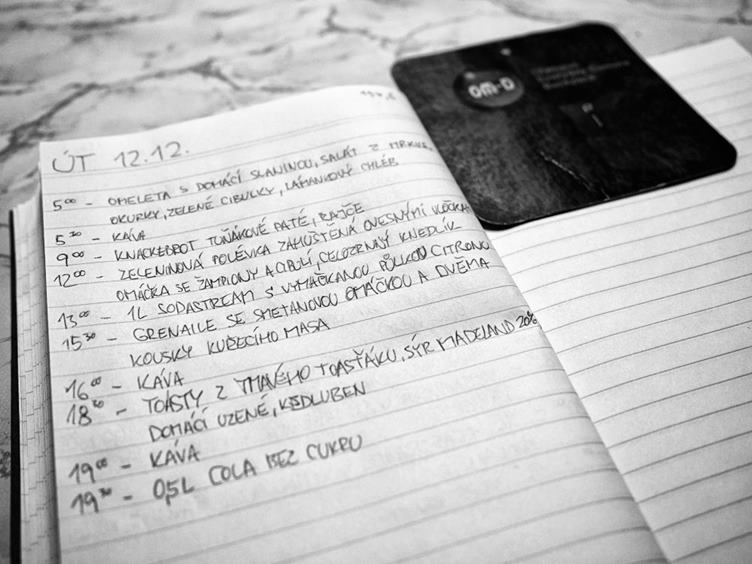 ÚT 12.12.
5⁰⁰ - OMELETA S DOMÁCÍ SLANINOU, SALÁT Z MRKVE,
OKURKY, ZELENÉ CIBULKY, LÁMANKOVÝ CHLÉB
5³⁰ - KÁVA
9⁰⁰ - KNACKEBROT TUŇÁKOVÉ PATÉ, RAJČE
12⁰⁰ - ZELENINOVÁ POLÉVKA ZAHUŠTĚNÁ OVESNÝMI VLOČKAMI
OMÁČKA SE ŽAMPIONY A CIBULÍ, CELOZRNNÝ KNEDLÍK
13⁰⁰ - 1L SODASTREAM S VYMAČKANOU PŮLKOU CITRONU
15³⁰ - GRENAILE SE SMETANOVOU OMÁČKOU A DVĚMA
KOUSKY KUŘECÍHO MASA
16⁰⁰ - KÁVA
18³⁰ - TOASTY Z TMAVÉHO TOASŤÁKU, SÝR MADELAND 20%
DOMÁCÍ UZENÉ, KEDLUBEN
19⁰⁰ - KÁVA
19³⁰ - 0,5L COLA BEZ CUKRU
OM-D